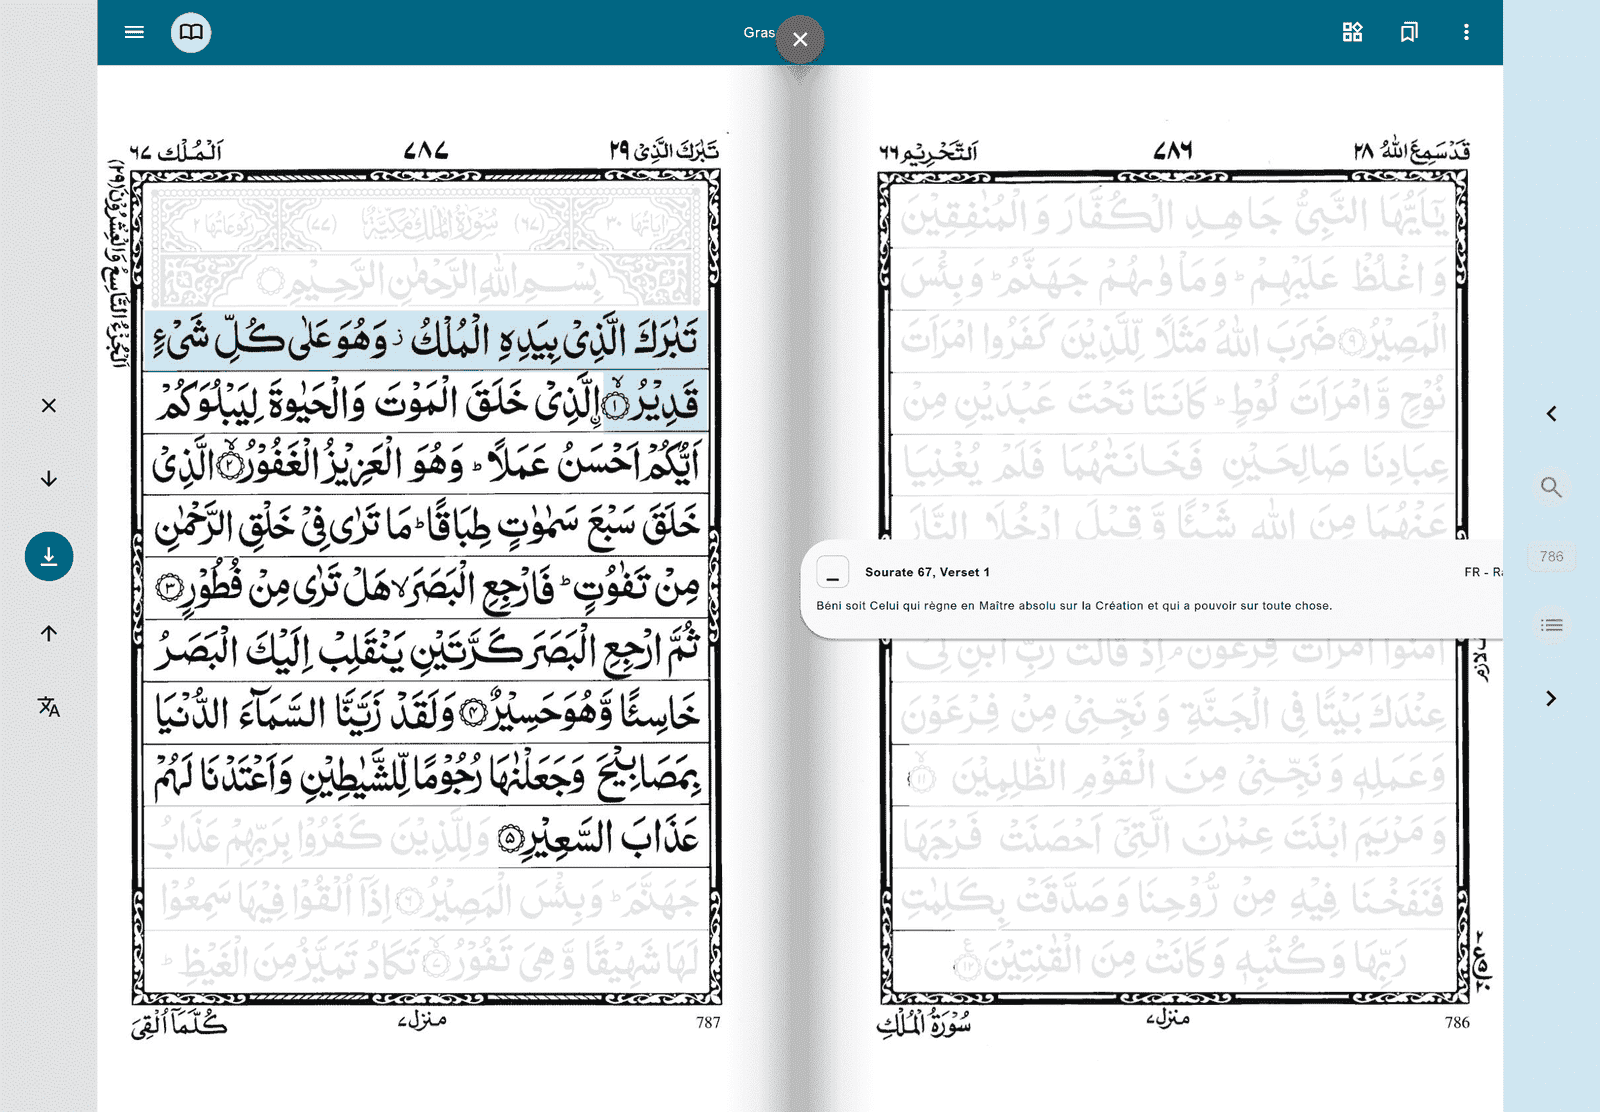 Gras
قَدْسَمِعَ اللّٰهُ ٢٨
٧٨٦
اَلتَّحْرِيْم ٦٦
يٰۤاَيُّهَا النَّبِيُّ جَاهِدِ الْكُفَّارَ وَالْمُنٰفِقِيْنَ
وَاغْلُظْ عَلَيْهِمْ ؕ وَمَاْوٰىهُمْ جَهَنَّمُ ؕ وَبِئْسَ
الْمَصِيْرُ ۹ ضَرَبَ اللّٰهُ مَثَلًا لِّلَّذِيْنَ كَفَرُوا امْرَاَتَ
نُوْحٍ وَّامْرَاَتَ لُوْطٍ ؕ كَانَتَا تَحْتَ عَبْدَيْنِ مِنْ
عِبَادِنَا صَالِحَيْنِ فَخَانَتٰهُمَا فَلَمْ يُغْنِيَا
عَنْهُمَا مِنَ اللّٰهِ شَيْـًٔا وَّقِيْلَ ادْخُلَا النَّارَ
Sourate 67, Verset 1
FR - Ra
Béni soit Celui qui règne en Maître absolu sur la Création et qui a pouvoir sur toute chose.
اٰمَنُوا امْرَاَتَ فِرْعَوْنَ ۘ اِذْ قَالَتْ رَبِّ ابْنِ لِيْ
عِنْدَكَ بَيْتًا فِي الْجَنَّةِ وَنَجِّنِيْ مِنْ فِرْعَوْنَ
وَعَمَلِهٖ وَنَجِّنِيْ مِنَ الْقَوْمِ الظّٰلِمِيْنَ ۱۱
وَمَرْيَمَ ابْنَتَ عِمْرٰنَ الَّتِيْۤ اَحْصَنَتْ فَرْجَهَا
فَنَفَخْنَا فِيْهِ مِنْ رُّوْحِنَا وَصَدَّقَتْ بِكَلِمٰتِ
رَبِّهَا وَكُتُبِهٖ وَكَانَتْ مِنَ الْقٰنِتِيْنَ ۱۲
786
منزل ٧
سُوْرَةُ الْمُلْكِ
تَبٰرَكَ الَّذِيْ ٢٩
٧٨٧
اَلْمُلْك ٦٧
اَلْجُزْءُ التَّاسِعُ وَالْعِشْرُوْنَ (٢٩)
اٰيَاتُهَا ٣٠ (٦٧) سُوْرَةُ الْمُلْكِ مَكِّيَّةٌ (٧٧) رُكُوْعَاتُهَا ٢
بِسْمِ اللّٰهِ الرَّحْمٰنِ الرَّحِيْمِ
تَبٰرَكَ الَّذِيْ بِيَدِهِ الْمُلْكُ ز وَهُوَ عَلٰى كُلِّ شَيْءٍ
قَدِيْرُ ۱ اِلَّذِيْ خَلَقَ الْمَوْتَ وَالْحَيٰوةَ لِيَبْلُوَكُمْ
اَيُّكُمْ اَحْسَنُ عَمَلًا ؕ وَهُوَ الْعَزِيْزُ الْغَفُوْرُ ۲ الَّذِيْ
خَلَقَ سَبْعَ سَمٰوٰتٍ طِبَاقًا ؕ مَا تَرٰى فِيْ خَلْقِ الرَّحْمٰنِ
مِنْ تَفٰوُتٍ ؕ فَارْجِعِ الْبَصَرَ ۙ هَلْ تَرٰى مِنْ فُطُوْرٍ ۳
ثُمَّ ارْجِعِ الْبَصَرَ كَرَّتَيْنِ يَنْقَلِبْ اِلَيْكَ الْبَصَرُ
خَاسِئًا وَّهُوَ حَسِيْرٌ ۴ وَلَقَدْ زَيَّنَّا السَّمَآءَ الدُّنْيَا
بِمَصَابِيْحَ وَجَعَلْنٰهَا رُجُوْمًا لِّلشَّيٰطِيْنِ وَاَعْتَدْنَا لَهُمْ
عَذَابَ السَّعِيْرِ ۵ وَلِلَّذِيْنَ كَفَرُوْا بِرَبِّهِمْ عَذَابُ
جَهَنَّمَ ؕ وَبِئْسَ الْمَصِيْرُ ۶ اِذَاۤ اُلْقُوْا فِيْهَا سَمِعُوْا
لَهَا شَهِيْقًا وَّهِيَ تَفُوْرُ ۷ تَكَادُ تَمَيَّزُ مِنَ الْغَيْظِ ؕ
787
منزل ٧
كُلَّمَاۤ اُلْقِيَ
786